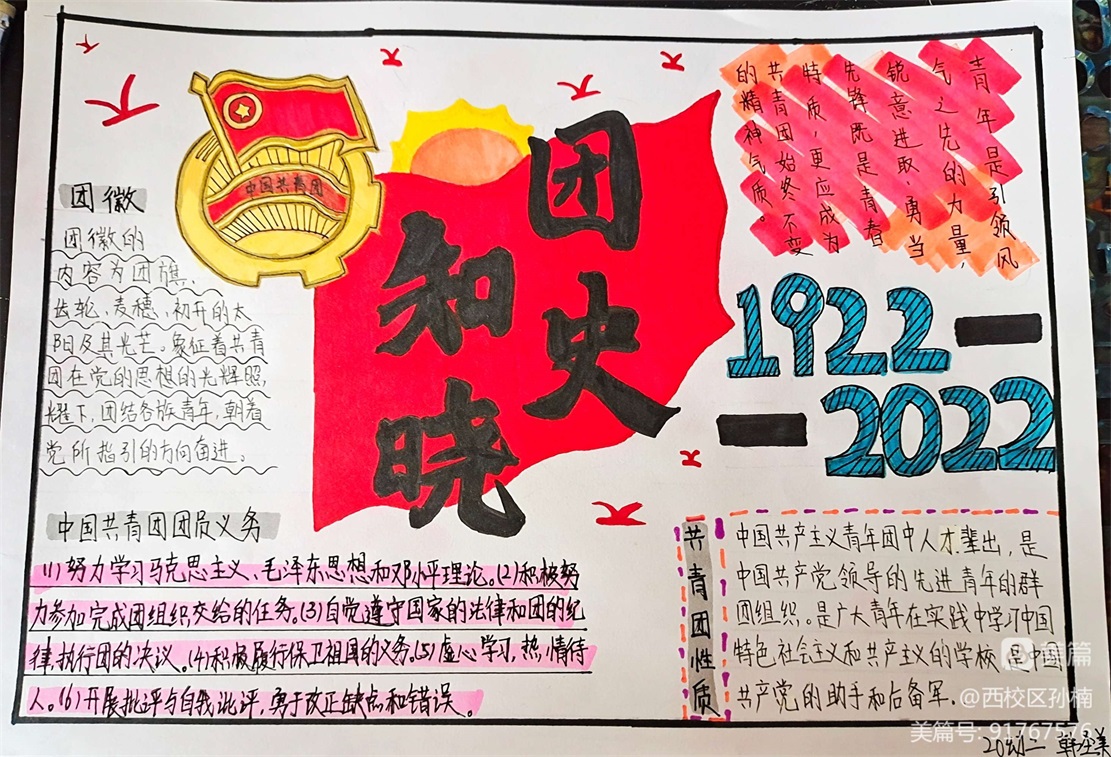 中国共青团
团史
知晓
青年是引领风
气之先的力量，
锐意进取，勇当
先锋既是青春
特质，更应成为
共青团始终不变
的精神气质。
1922—
—2022
团徽
团徽的
内容为团旗、
齿轮、麦穗、初升的太
阳及其光芒。象征着共青
团在党的思想的光辉照
耀下，团结各族青年，朝着
党所指引的方向奋进。
中国共青团团员义务
(1)努力学习马克思主义、毛泽东思想和邓小平理论。(2)积极努
力参加完成团组织交给的任务。(3)自觉遵守国家的法律和团的纪
律，执行团的决议。(4)积极履行保卫祖国的义务。(5)虚心学习，热情待
人。(6)开展批评与自我批评，勇于改正缺点和错误。
共青团性质
中国共产主义青年团中人才辈出，是
中国共产党领导的先进青年的群
团组织。是广大青年在实践中学习中国
特色社会主义和共产主义的学校，是中国
共产党的助手和后备军。
美篇
@西校区孙楠
美篇号: 91767576